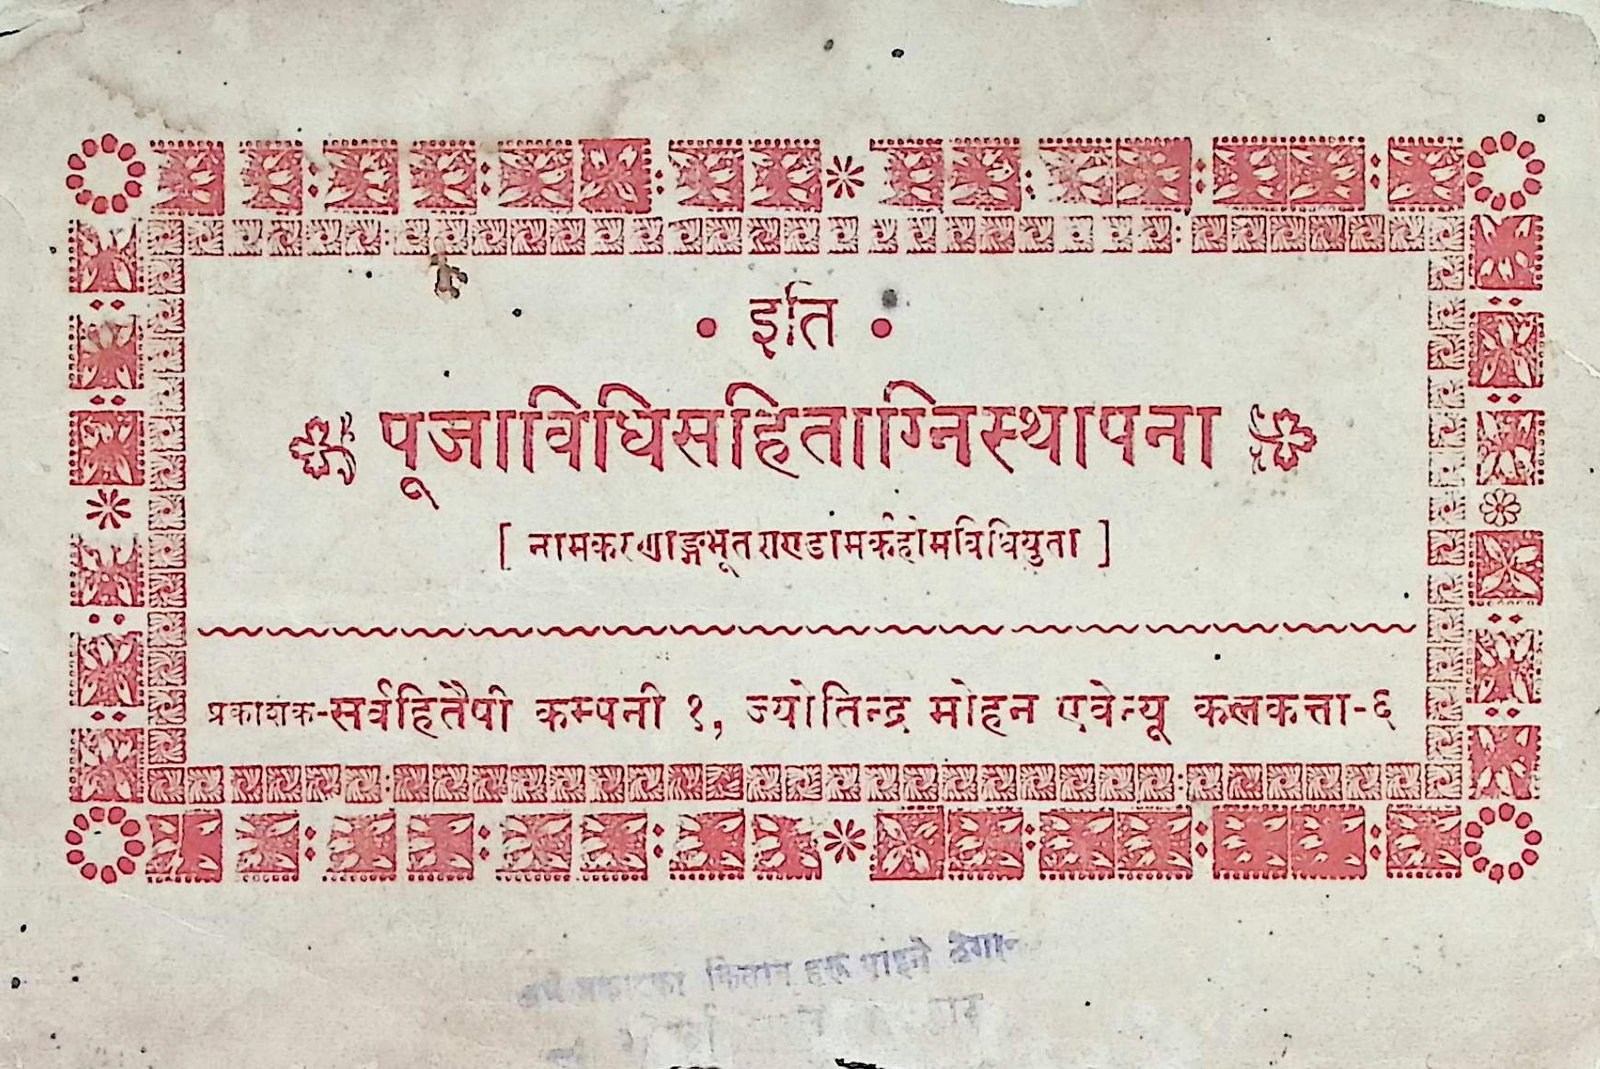 • इति •
पूजाविधिसहिताग्निस्थापना
[ नामकरणाङ्गभूतशण्डामर्कहोमविधियुता ]
प्रकाशक-सर्वहितैषी कम्पनी १, ज्योतिन्द्र मोहन एवेन्यू कलकत्ता-६
किताब हरू पाइने ठेगाना